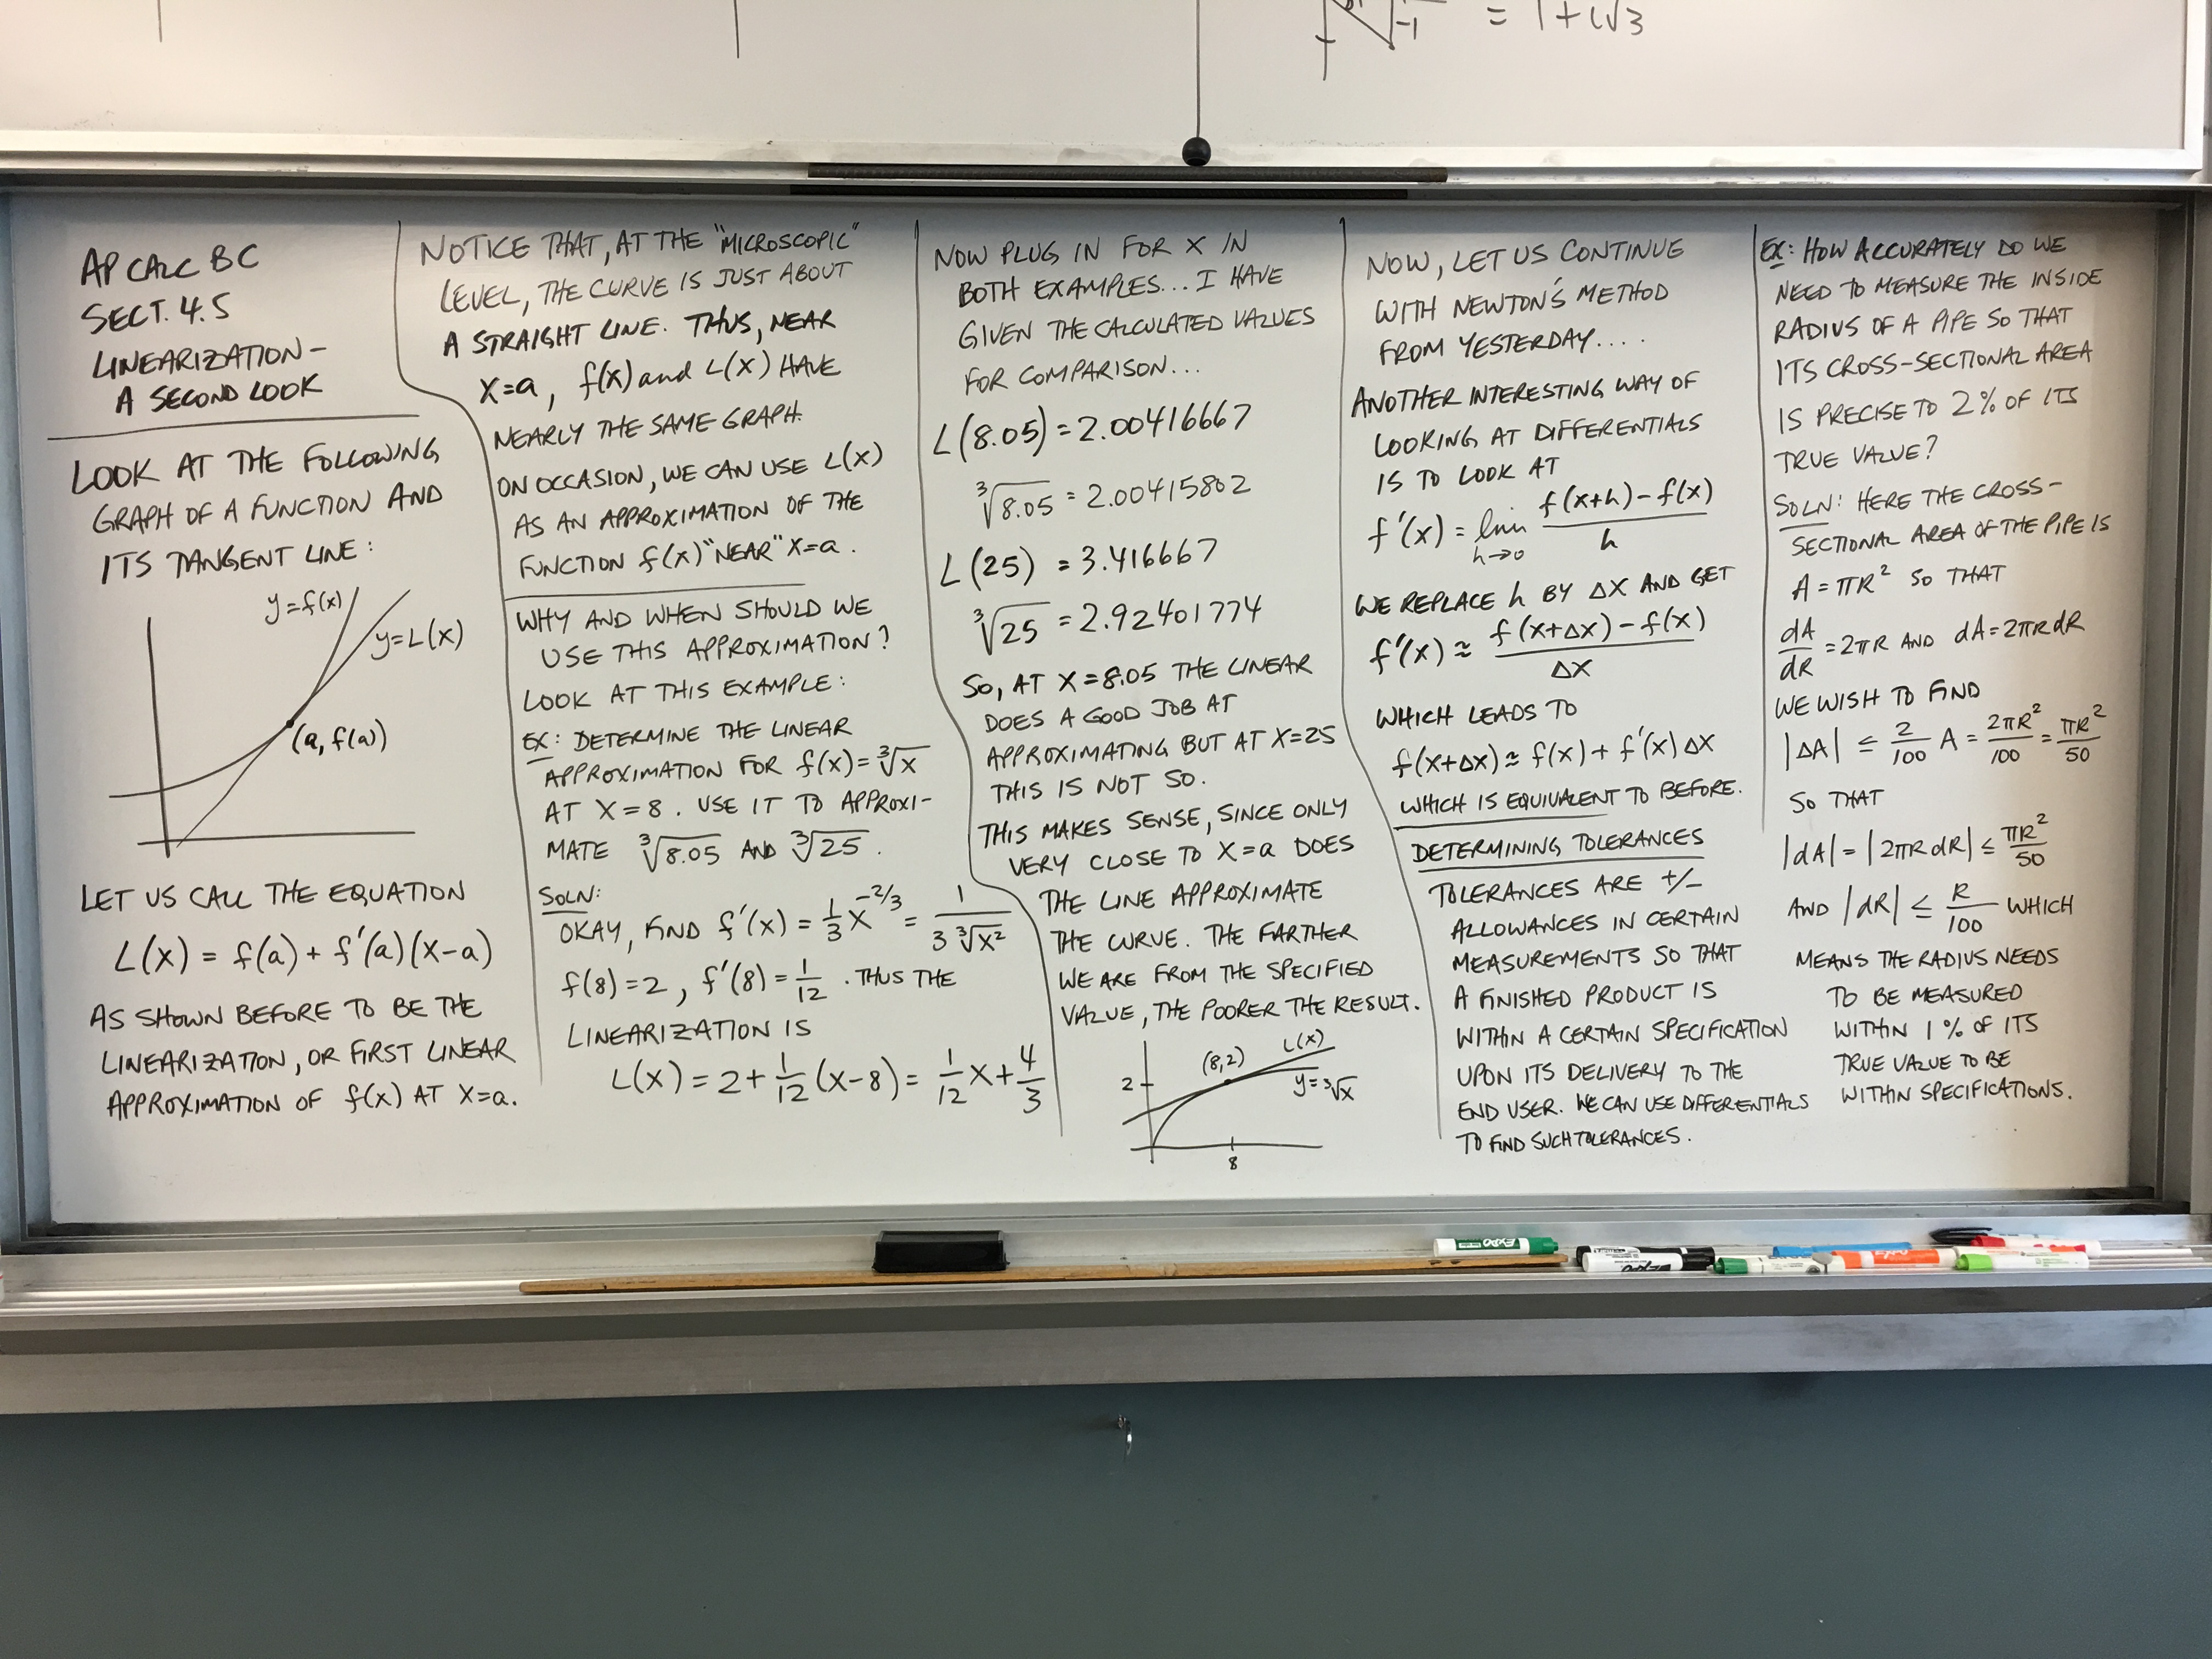 = 1+i√3
-1
AP CALC BC
SECT. 4.5
LINEARIZATION –
A SECOND LOOK
LOOK AT THE FOLLOWING
GRAPH OF A FUNCTION AND
ITS TANGENT LINE:
y=f(x)
y=L(x)
(a, f(a))
LET US CALL THE EQUATION
L(x) = f(a) + f'(a)(x-a)
AS SHOWN BEFORE TO BE THE
LINEARIZATION, OR FIRST LINEAR
APPROXIMATION OF f(x) AT X=a.
NOTICE THAT, AT THE "MICROSCOPIC"
LEVEL, THE CURVE IS JUST ABOUT
A STRAIGHT LINE. THUS, NEAR
X=a, f(x) and L(x) HAVE
NEARLY THE SAME GRAPH.
ON OCCASION, WE CAN USE L(x)
AS AN APPROXIMATION OF THE
FUNCTION f(x) "NEAR" X=a.
WHY AND WHEN SHOULD WE
USE THIS APPROXIMATION?
LOOK AT THIS EXAMPLE:
EX: DETERMINE THE LINEAR
APPROXIMATION FOR f(x) = ∛x
AT X = 8. USE IT TO APPROXI-
MATE ∛8.05 AND ∛25.
SOLN:
OKAY, FIND f'(x) = 1/3 x^-2/3 = 1/(3∛x²)
f(8) = 2, f'(8) = 1/12. THUS THE
LINEARIZATION IS
L(x) = 2 + 1/12 (x-8) = 1/12 x + 4/3
NOW PLUG IN FOR X IN
BOTH EXAMPLES... I HAVE
GIVEN THE CALCULATED VALUES
FOR COMPARISON...
L(8.05) = 2.00416667
∛8.05 = 2.00415802
L(25) = 3.416667
∛25 = 2.92401774
SO, AT X=8.05 THE LINEAR
DOES A GOOD JOB AT
APPROXIMATING BUT AT X=25
THIS IS NOT SO.
THIS MAKES SENSE, SINCE ONLY
VERY CLOSE TO X=a DOES
THE LINE APPROXIMATE
THE CURVE. THE FARTHER
WE ARE FROM THE SPECIFIED
VALUE, THE POORER THE RESULT.
(8,2)
L(x)
2
y=∛x
8
NOW, LET US CONTINUE
WITH NEWTON'S METHOD
FROM YESTERDAY....
ANOTHER INTERESTING WAY OF
LOOKING AT DIFFERENTIALS
IS TO LOOK AT
f'(x) = lim h→0 (f(x+h) - f(x))/h
WE REPLACE h BY ΔX AND GET
f'(x) ≈ (f(x+Δx) - f(x))/Δx
WHICH LEADS TO
f(x+Δx) ≈ f(x) + f'(x) Δx
WHICH IS EQUIVALENT TO BEFORE.
DETERMINING TOLERANCES
TOLERANCES ARE +/-
ALLOWANCES IN CERTAIN
MEASUREMENTS SO THAT
A FINISHED PRODUCT IS
WITHIN A CERTAIN SPECIFICATION
UPON ITS DELIVERY TO THE
END USER. WE CAN USE DIFFERENTIALS
TO FIND SUCH TOLERANCES.
EX: HOW ACCURATELY DO WE
NEED TO MEASURE THE INSIDE
RADIUS OF A PIPE SO THAT
ITS CROSS-SECTIONAL AREA
IS PRECISE TO 2% OF ITS
TRUE VALUE?
SOLN: HERE THE CROSS-
SECTIONAL AREA OF THE PIPE IS
A = πR² SO THAT
dA/dR = 2πR AND dA = 2πR dR
WE WISH TO FIND
|ΔA| ≤ 2/100 A = 2πR²/100 = πR²/50
SO THAT
|dA| = |2πR dR| ≤ πR²/50
AND |dR| ≤ R/100 WHICH
MEANS THE RADIUS NEEDS
TO BE MEASURED
WITHIN 1% OF ITS
TRUE VALUE TO BE
WITHIN SPECIFICATIONS.
EXPO
EXPO